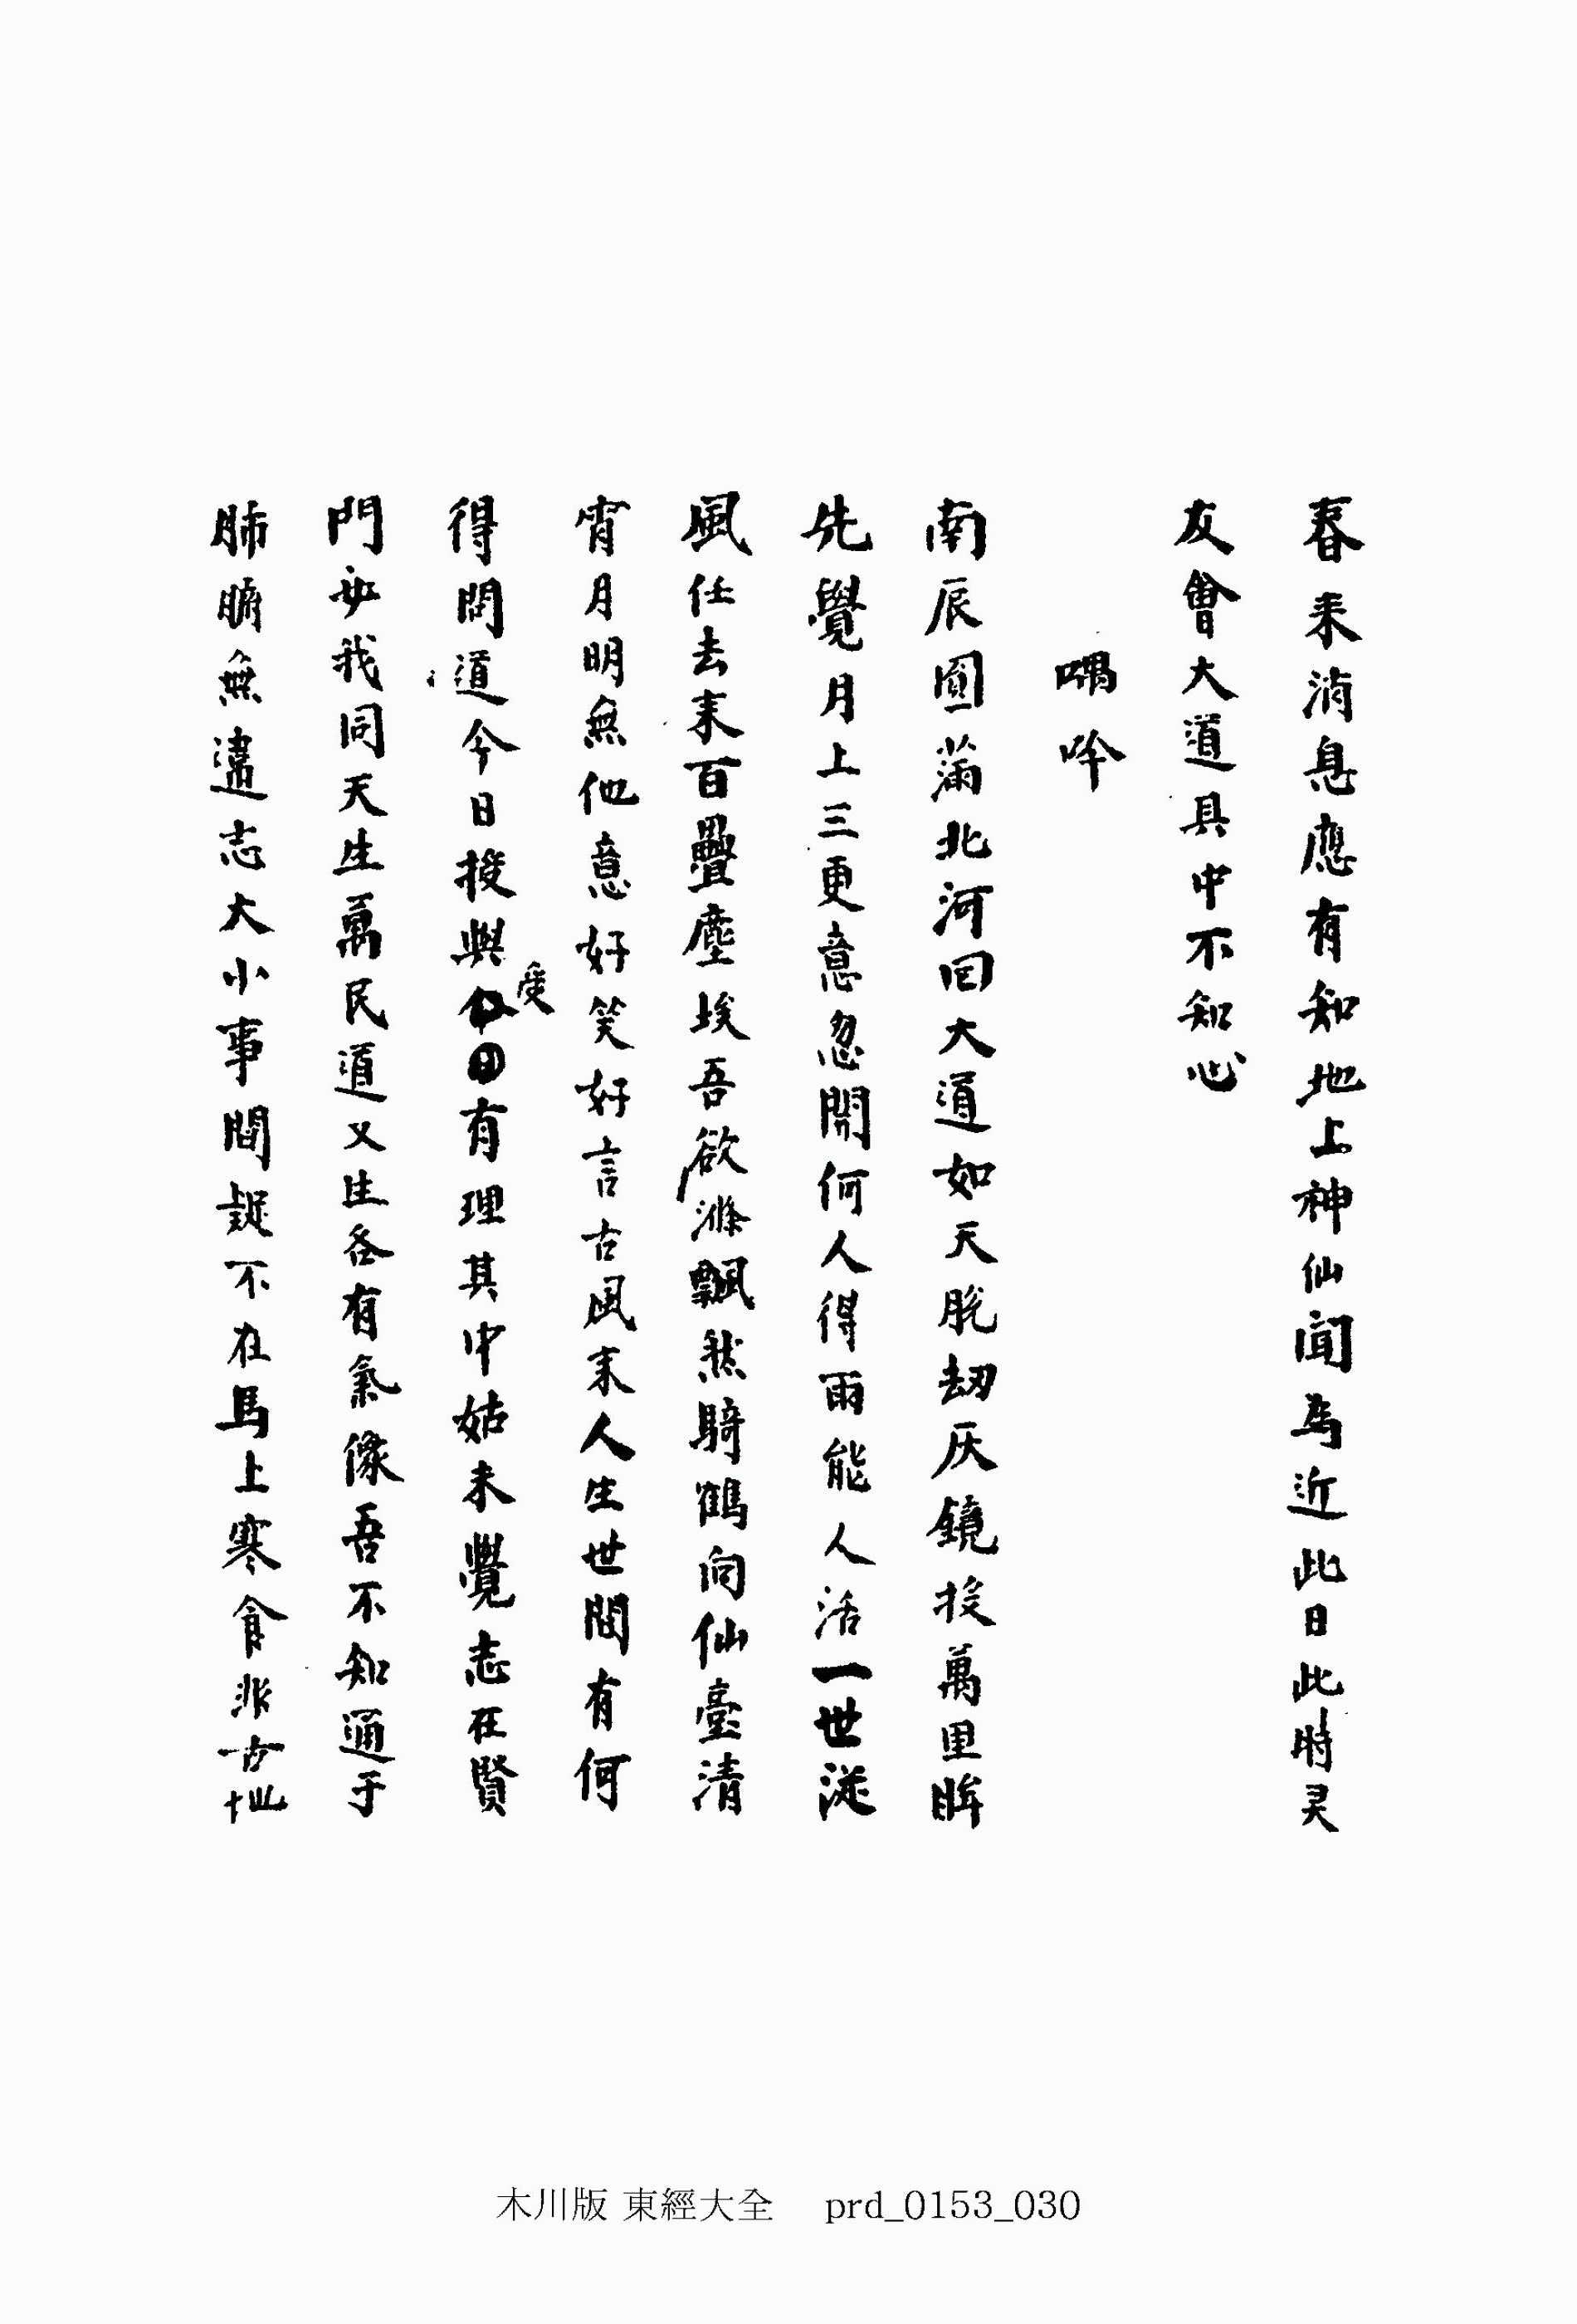 春来消息應有知地上神仙聞爲近此日此時灵
友會大道具中不知心
喁吟
南辰圓滿北河回大道如天脫劫灰鏡投萬里眸
先覺月上三更意忽開何人得雨能人活一世從
風任去来百疊塵埃吾欲滌飄然騎鶴向仙臺清
宵月明無他意好笑好言古风来人生世間有何
得問道今日授與受有理其中姑未覺志在賢
門必我同天生萬民道又生各有氣像吾不知通于
肺腑無違志大小事間疑不在馬上寒食非古地
木川版 東經大全 prd_0153_030